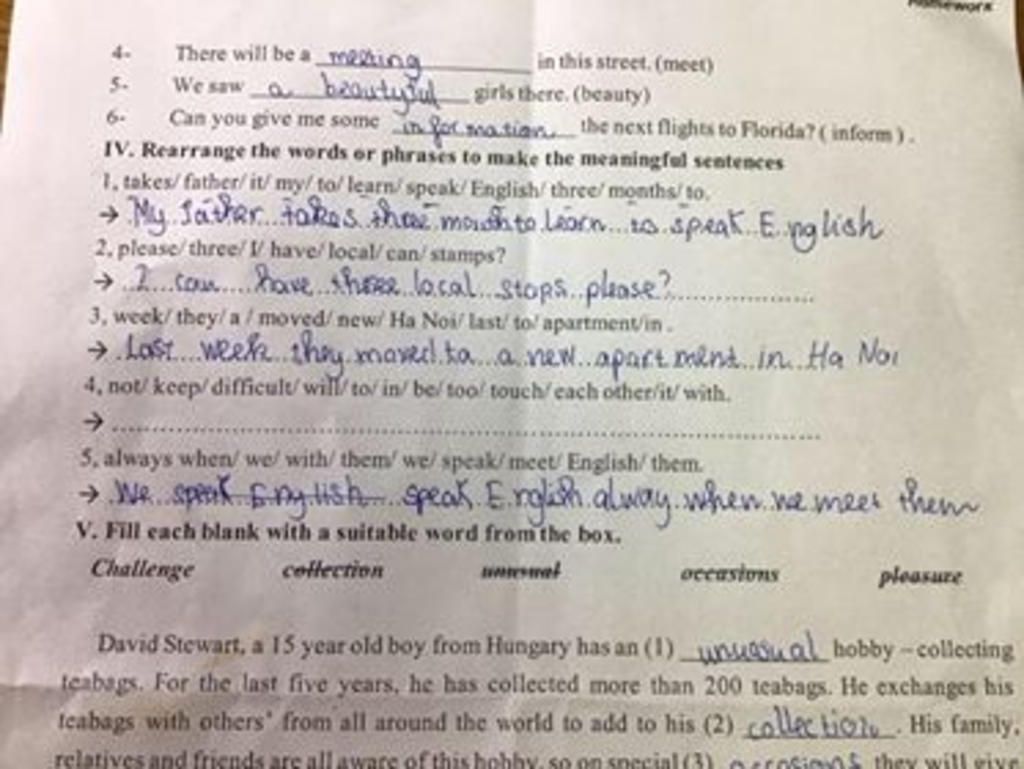 Homework
4- There will be a meeting in this street. (meet)
5- We saw a beautyful girls there. (beauty)
6- Can you give me some information the next flights to Florida? ( inform ) .
IV. Rearrange the words or phrases to make the meaningful sentences
1, takes/ father/ it/ my/ to/ learn/ speak/ English/ three/ months/ to.
→ My father takes three month to learn to speak English
2, please/ three/ I/ have/ local/ can/ stamps?
→ I can have three local stops please?
3, week/ they/ a / moved/ new/ Ha Noi/ last/ to/ apartment/in .
→ Last week they moved to a new apartment in Ha Noi
4, not/ keep/ difficult/ will/ to/ in/ be/ too/ touch/ each other/it/ with.
→
5, always when/ we/ with/ them/ we/ speak/ meet/ English/ them.
→ We speak English speak English alway when we meet them
V. Fill each blank with a suitable word from the box.
Challenge collection unusual occasions pleasure
David Stewart, a 15 year old boy from Hungary has an (1) unusual hobby – collecting
teabags. For the last five years, he has collected more than 200 teabags. He exchanges his
teabags with others' from all around the world to add to his (2) collection . His family,
relatives and friends are all aware of this hobby, so on special (3) occasions they will give